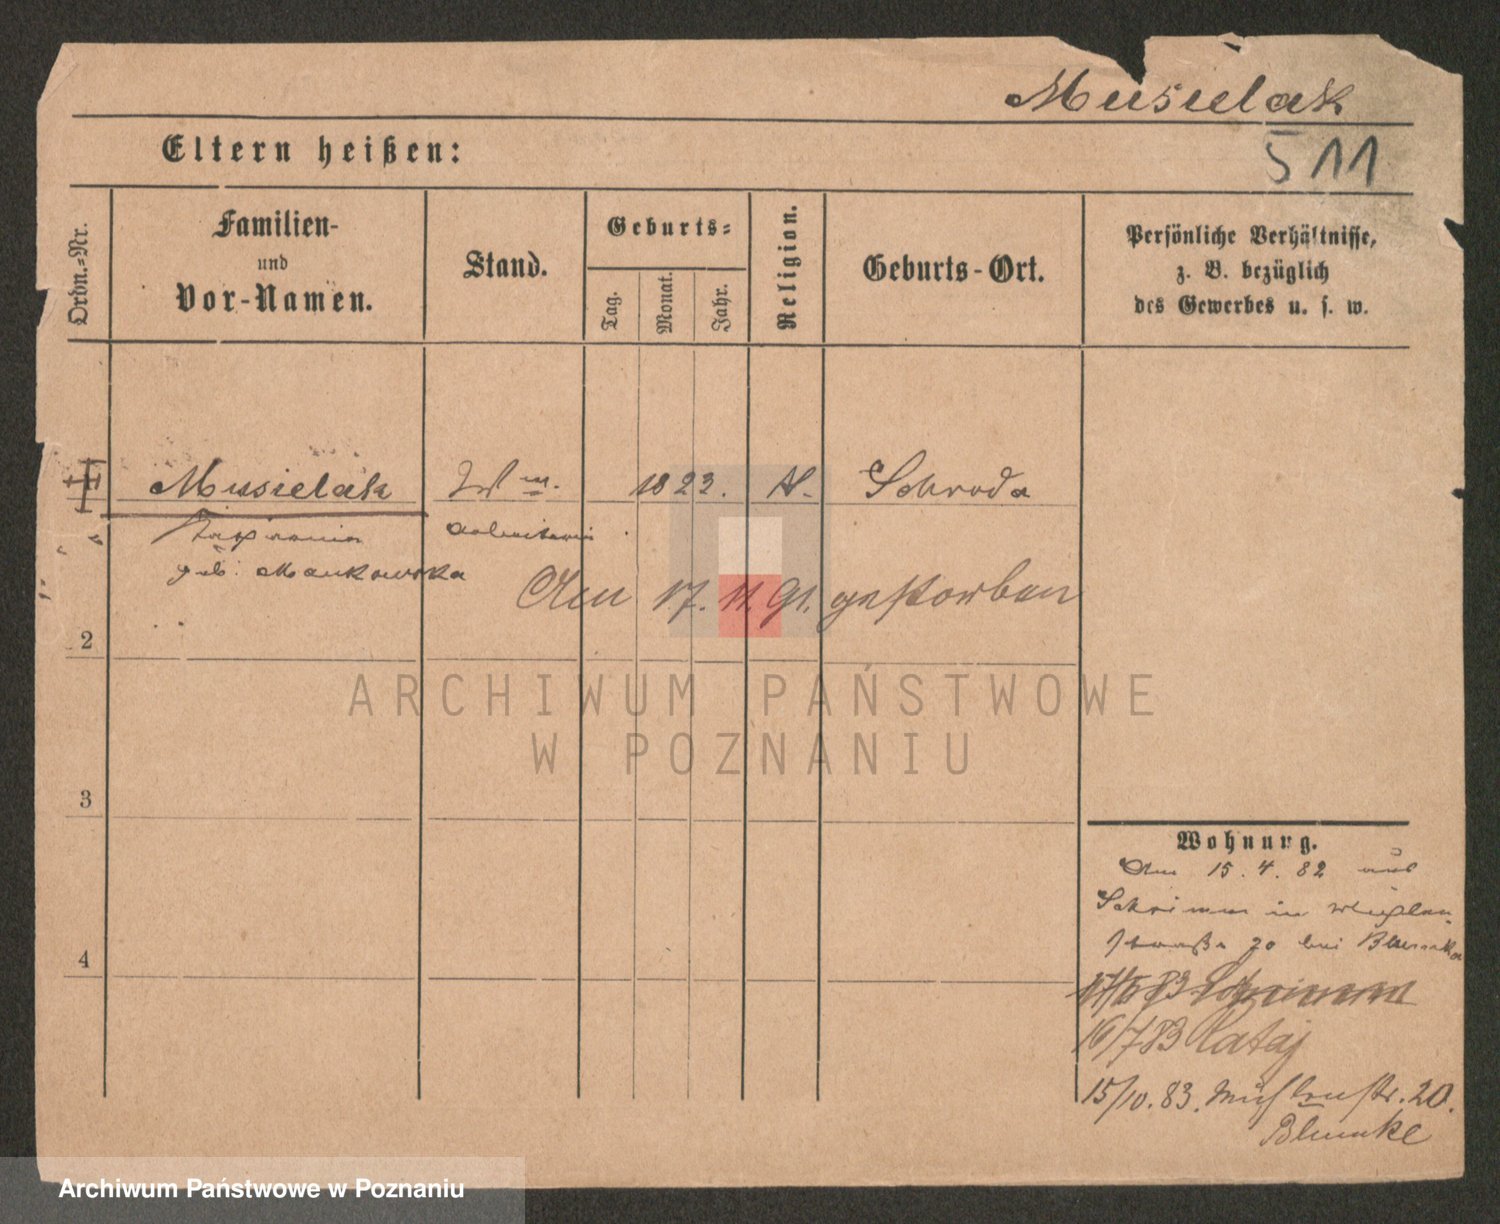 Musielak
511
Eltern heißen:
Ordn.=Nr.
Familien-
und
Vor-Namen.
Stand.
Geburts=
Tag.
Monat.
Jahr.
Religion.
Geburts-Ort.
Persönliche Verhältnisse,
z. B. bezüglich
des Gewerbes u. s. w.
Musielak
1823.
K.
Schroda
geb. Mankowska
Am 17. 11. 91. gestorben
2
ARCHIWUM PAŃSTWOWE
W POZNANIU
3
4
Wohnung.
Am 15. 4. 82 aus
Schrimm in
straße 20 bei Blumke
16/7 83 Rataj
15/10. 83. Mühlenstr. 20.
Blumke
Archiwum Państwowe w Poznaniu